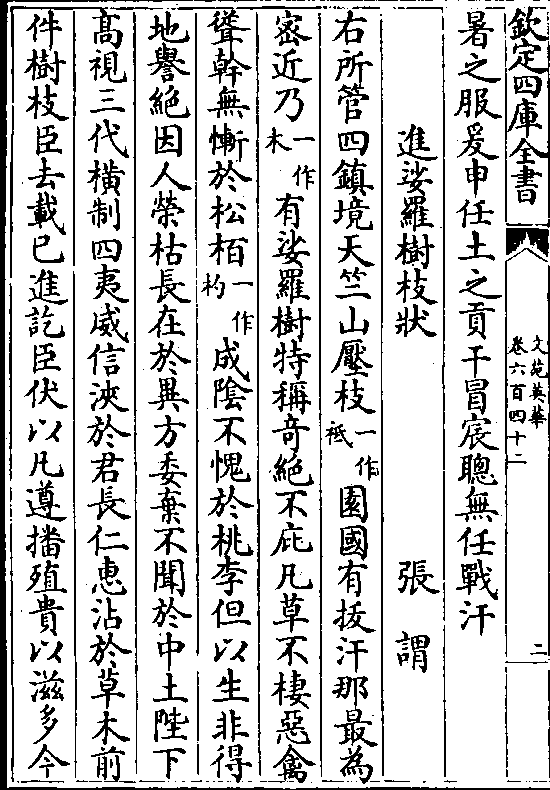 欽定四庫全書
文苑英華
卷六百四十二
二
暑之服爰申任土之貢干冒宸聰無任戰汗
進娑羅樹枝狀 張謂
右所管四鎮境天竺山壓枝一作祗園國有拔汗那最為
宻近乃一作木有娑羅樹特稱奇絶不庇凡草不棲惡禽
聳幹無慚於松栢一作杓成隂不愧於桃李但以生非得
地譽絶因人榮枯長在於異方委棄不聞於中土陛下
髙視三代横制四夷威信浹於君長仁惠沾於草木前
件樹枝臣去載已進訖臣伏以凡遵播殖貴以滋多今